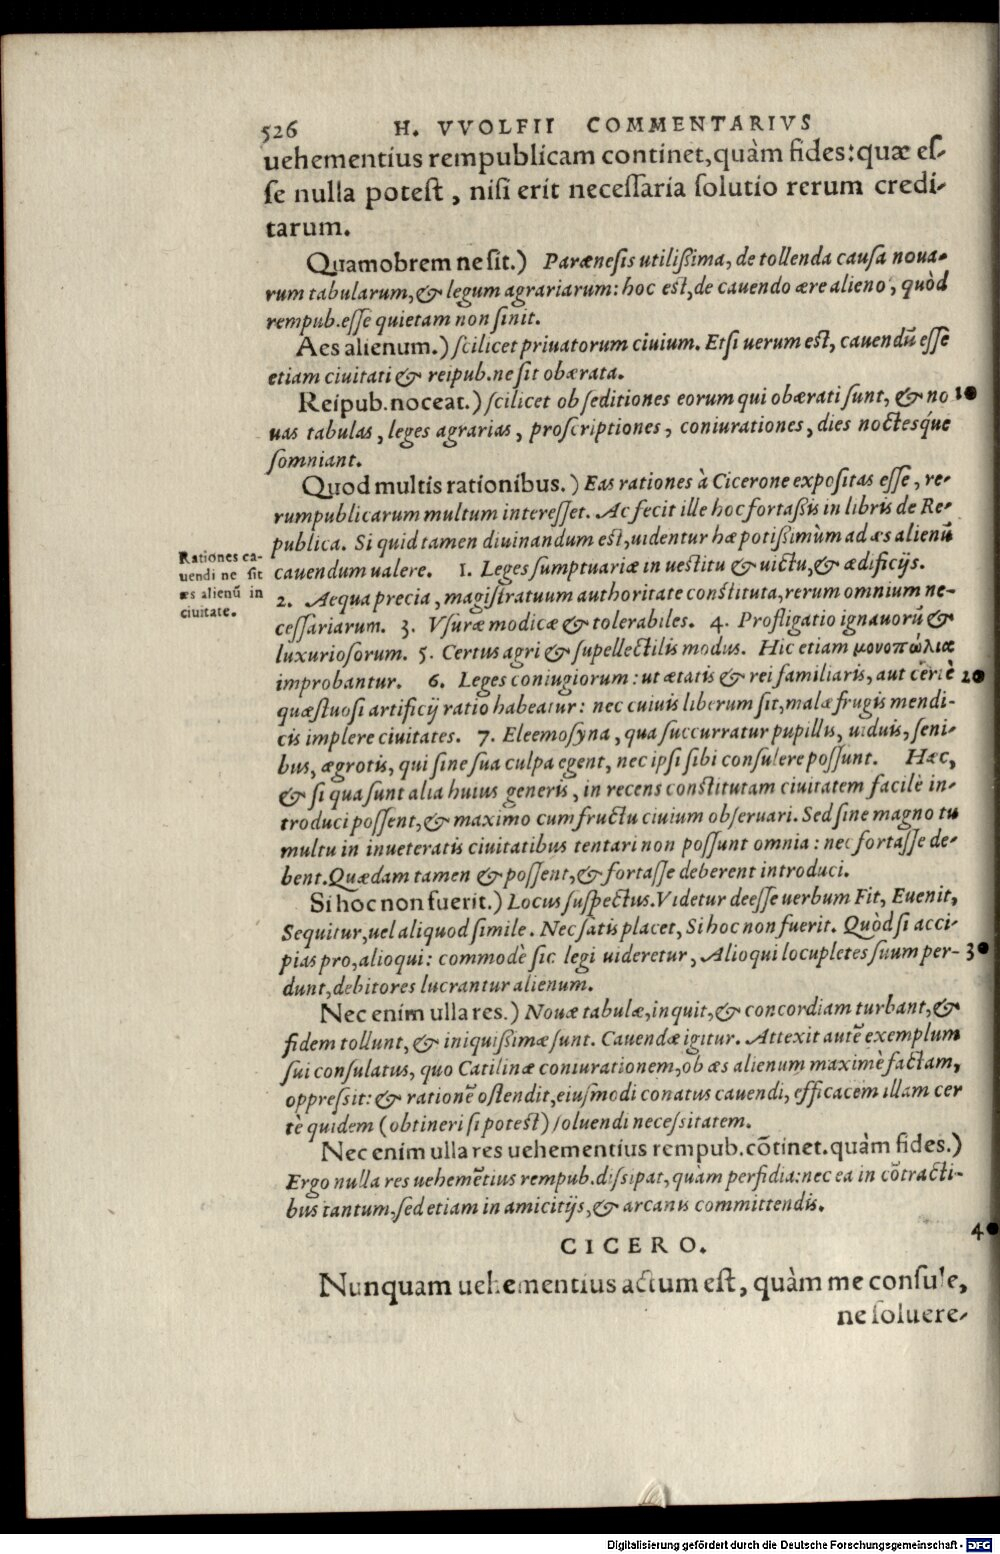 526 H. VVOLFII COMMENTARIVS
uehementius rempublicam continet, quàm fides: quæ es-
se nulla potest, nisi erit necessaria solutio rerum credi-
tarum.
Quamobrem ne sit.) Parænesis utilißima, de tollenda causa noua-
rum tabularum, & legum agrariarum: hoc est, de cauendo ære alieno, quòd
rempub. esse quietam non sinit.
Aes alienum.) scilicet priuatorum ciuium. Etsi uerum est, cauendũ esse
etiam ciuitati & reipub. ne sit obærata.
Reipub. noceat.) scilicet ob seditiones eorum qui obærati sunt, & no 10
uas tabulas, leges agrarias, proscriptiones, coniurationes, dies noctesq́ue
somniant.
Quod multis rationibus.) Eas rationes à Cicerone expositas esse, re-
rumpublicarum multum interesset. Ac fecit ille hoc fortaßis in libris de Re-
publica. Si quid tamen diuinandum est, uidentur hæ potißimùm ad æs alienũ
Rationes ca-
uendi ne sit
æs alienũ in
ciuitate.
cauendum ualere. 1. Leges sumptuariæ in uestitu & uictu, & ædificijs.
2. Aequa precia, magistratuum authoritate constituta, rerum omnium ne-
cessariarum. 3. Vsuræ modicæ & tolerabiles. 4. Profligatio ignauorũ &
luxuriosorum. 5. Certus agri & supellectilis modus. Hic etiam μονοπώλιαι
improbantur. 6. Leges coniugiorum: ut ætatis & rei familiaris, aut certè 20
quæstuosi artificij ratio habeatur: nec cuiuis liberum sit, malæ frugis mendi-
cis implere ciuitates. 7. Eleemosyna, qua succurratur pupillis, uiduis, seni-
bus, ægrotis, qui sine sua culpa egent, nec ipsi sibi consulere possunt. Hæc,
& si qua sunt alia huius generis, in recens constitutam ciuitatem facilè in-
troduci possent, & maximo cum fructu ciuium obseruari. Sed sine magno tu
multu in inueteratis ciuitatibus tentari non possunt omnia: nec fortasse de-
bent. Quædam tamen & possent, & fortasse deberent introduci.
Si hoc non fuerit.) Locus suspectus. Videtur deesse uerbum Fit, Euenit,
Sequitur, uel aliquod simile. Nec satis placet, Si hoc non fuerit. Quòd si acci-
pias pro, alioqui: commodè sic legi uideretur, Alioqui locupletes suum per- 30
dunt, debitores lucrantur alienum.
Nec enim ulla res.) Nouæ tabulæ, inquit, & concordiam turbant, &
fidem tollunt, & iniquißimæ sunt. Cauendæ igitur. Attexit autẽ exemplum
sui consulatus, quo Catilinæ coniurationem, ob æs alienum maximè factam,
oppressit: & rationẽ ostendit, eiusmodi conatus cauendi, efficacem illam cer
tè quidem (obtineri si potest) soluendi necessitatem.
Nec enim ulla res uehementius rempub. cõtinet. quàm fides.)
Ergo nulla res uehemẽtius rempub. dissipat, quàm perfidia: nec ea in cõtracti-
bus tantum, sed etiam in amicitijs, & arcanis committendis.
40
CICERO.
Nunquam uehementius actum est, quàm me consule,
ne soluere-
Digitalisierung gefördert durch die Deutsche Forschungsgemeinschaft - DFG